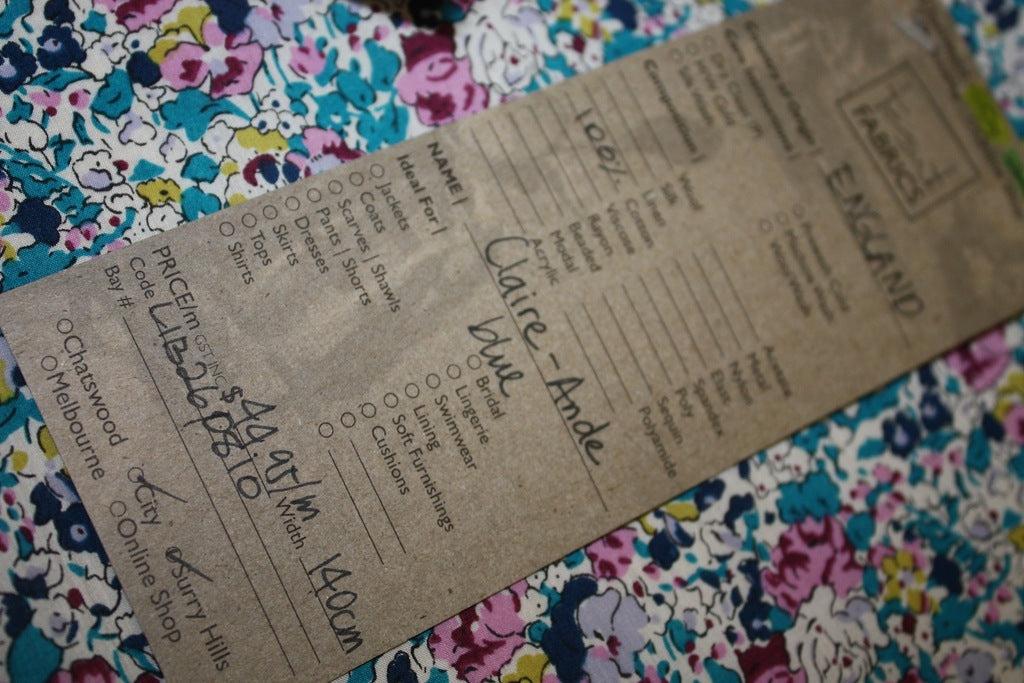 FABRICS
Country of Origin | ENGLAND
Care Instructions |
Dry Clean
Warm Wash
Hand Wash
Composition |
Wool
Silk
Linen
100% Cotton
Viscose
Rayon
Beaded
Modal
Acrylic
Acetate
Metal
Nylon
Elastic
Spandex
Poly
Sequin
Polyamide
NAME | Claire-Ande
blue
Ideal For |
Jackets
Coats
Scarves | Shawls
Pants | Shorts
Dresses
Skirts
Tops
Shirts
Bridal
Lingerie
Swimwear
Lining
Soft Furnishings
Cushions
PRICE/m GST INC. $44.95/m Width 140cm
Code LIB26P0810
Bay #
Chatswood City Surry Hills
Melbourne Online Shop